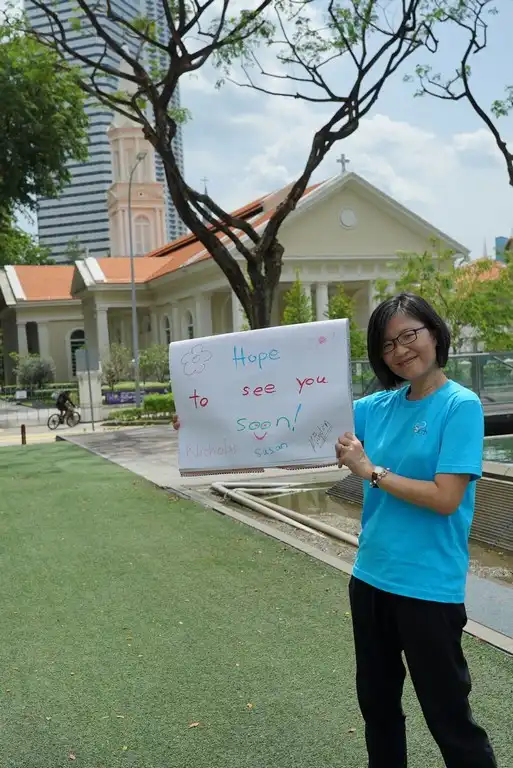 Hope
to see you
soon!
Nicholas Susan